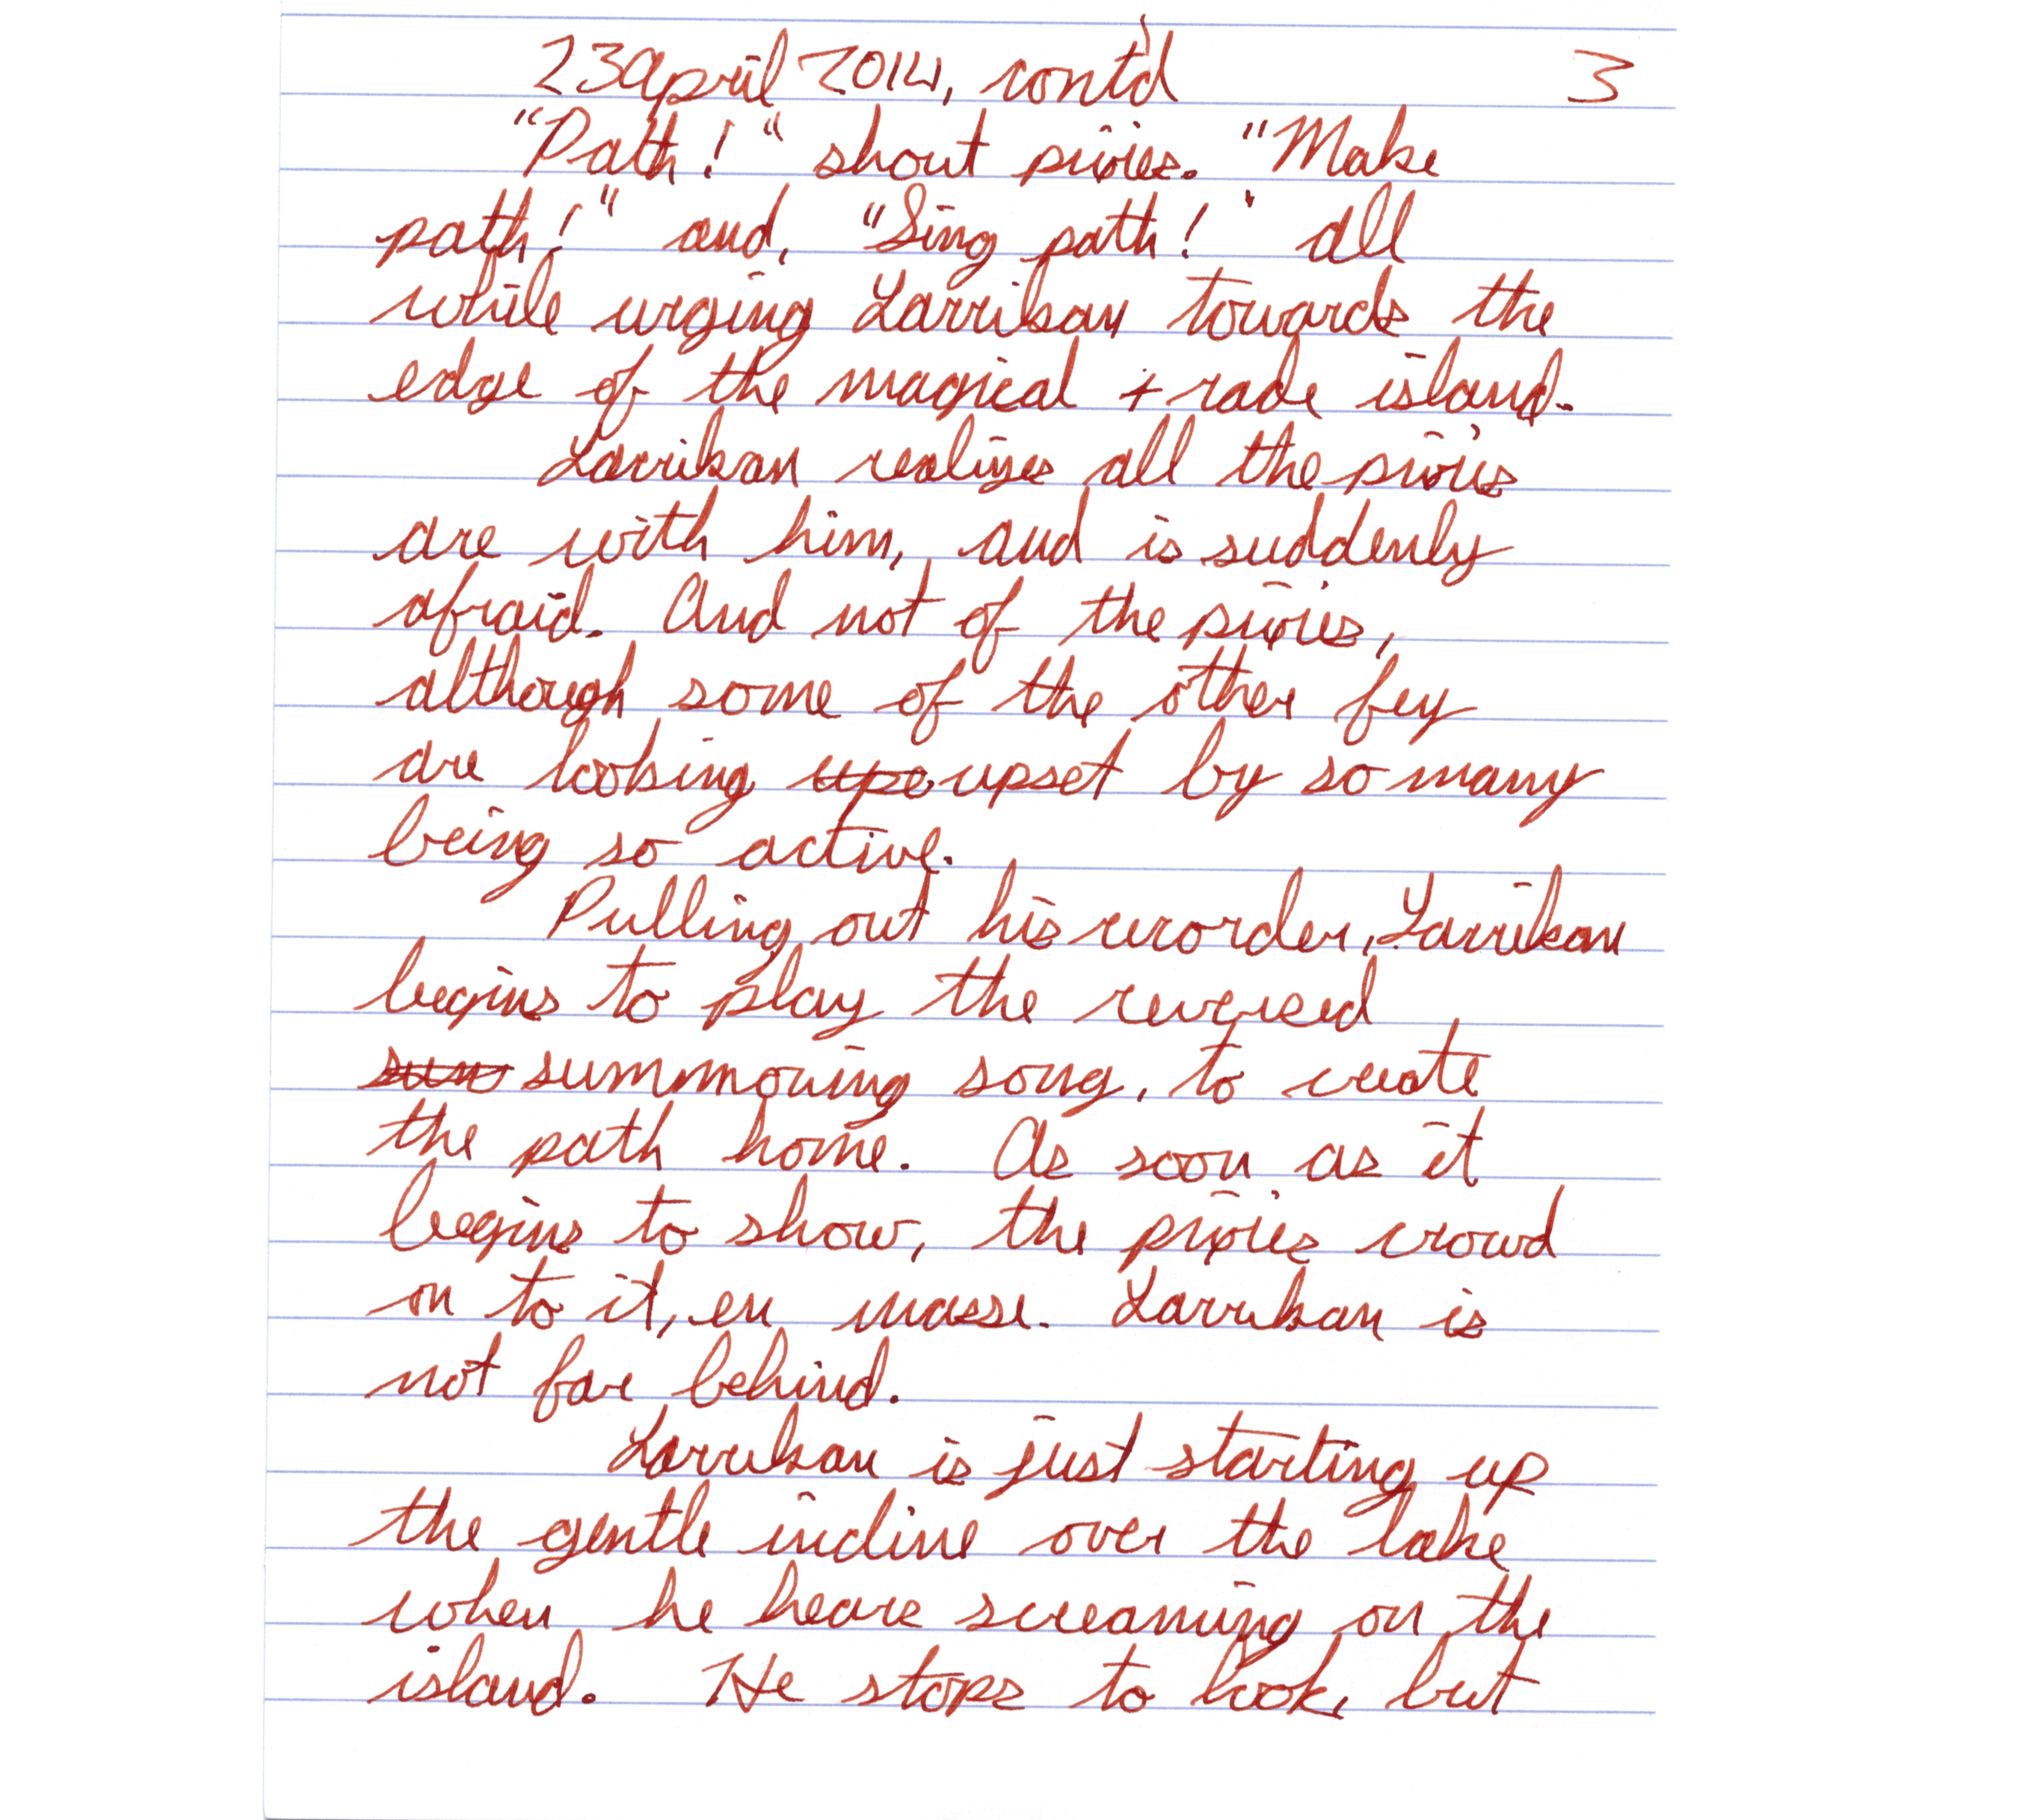 23 April 2014, cont'd 3
"Path!" shout pixies. "Make
path!" and, "Sing path!" all
while urging Larrikan towards the
edge of the magical trade island.
Larrikan realizes all the pixies
are with him, and is suddenly
afraid. And not of the pixies,
although some of the other fey
are looking upo upset by so many
being so active.
Pulling out his recorder, Larrikan
begins to play the reversed
sumo summoning song, to create
the path home. As soon as it
begins to show, the pixies crowd
on to it, en masse. Larrikan is
not far behind.
Larrikan is just starting up
the gentle incline over the lake
when he hears screaming on the
island. He stops to look, but